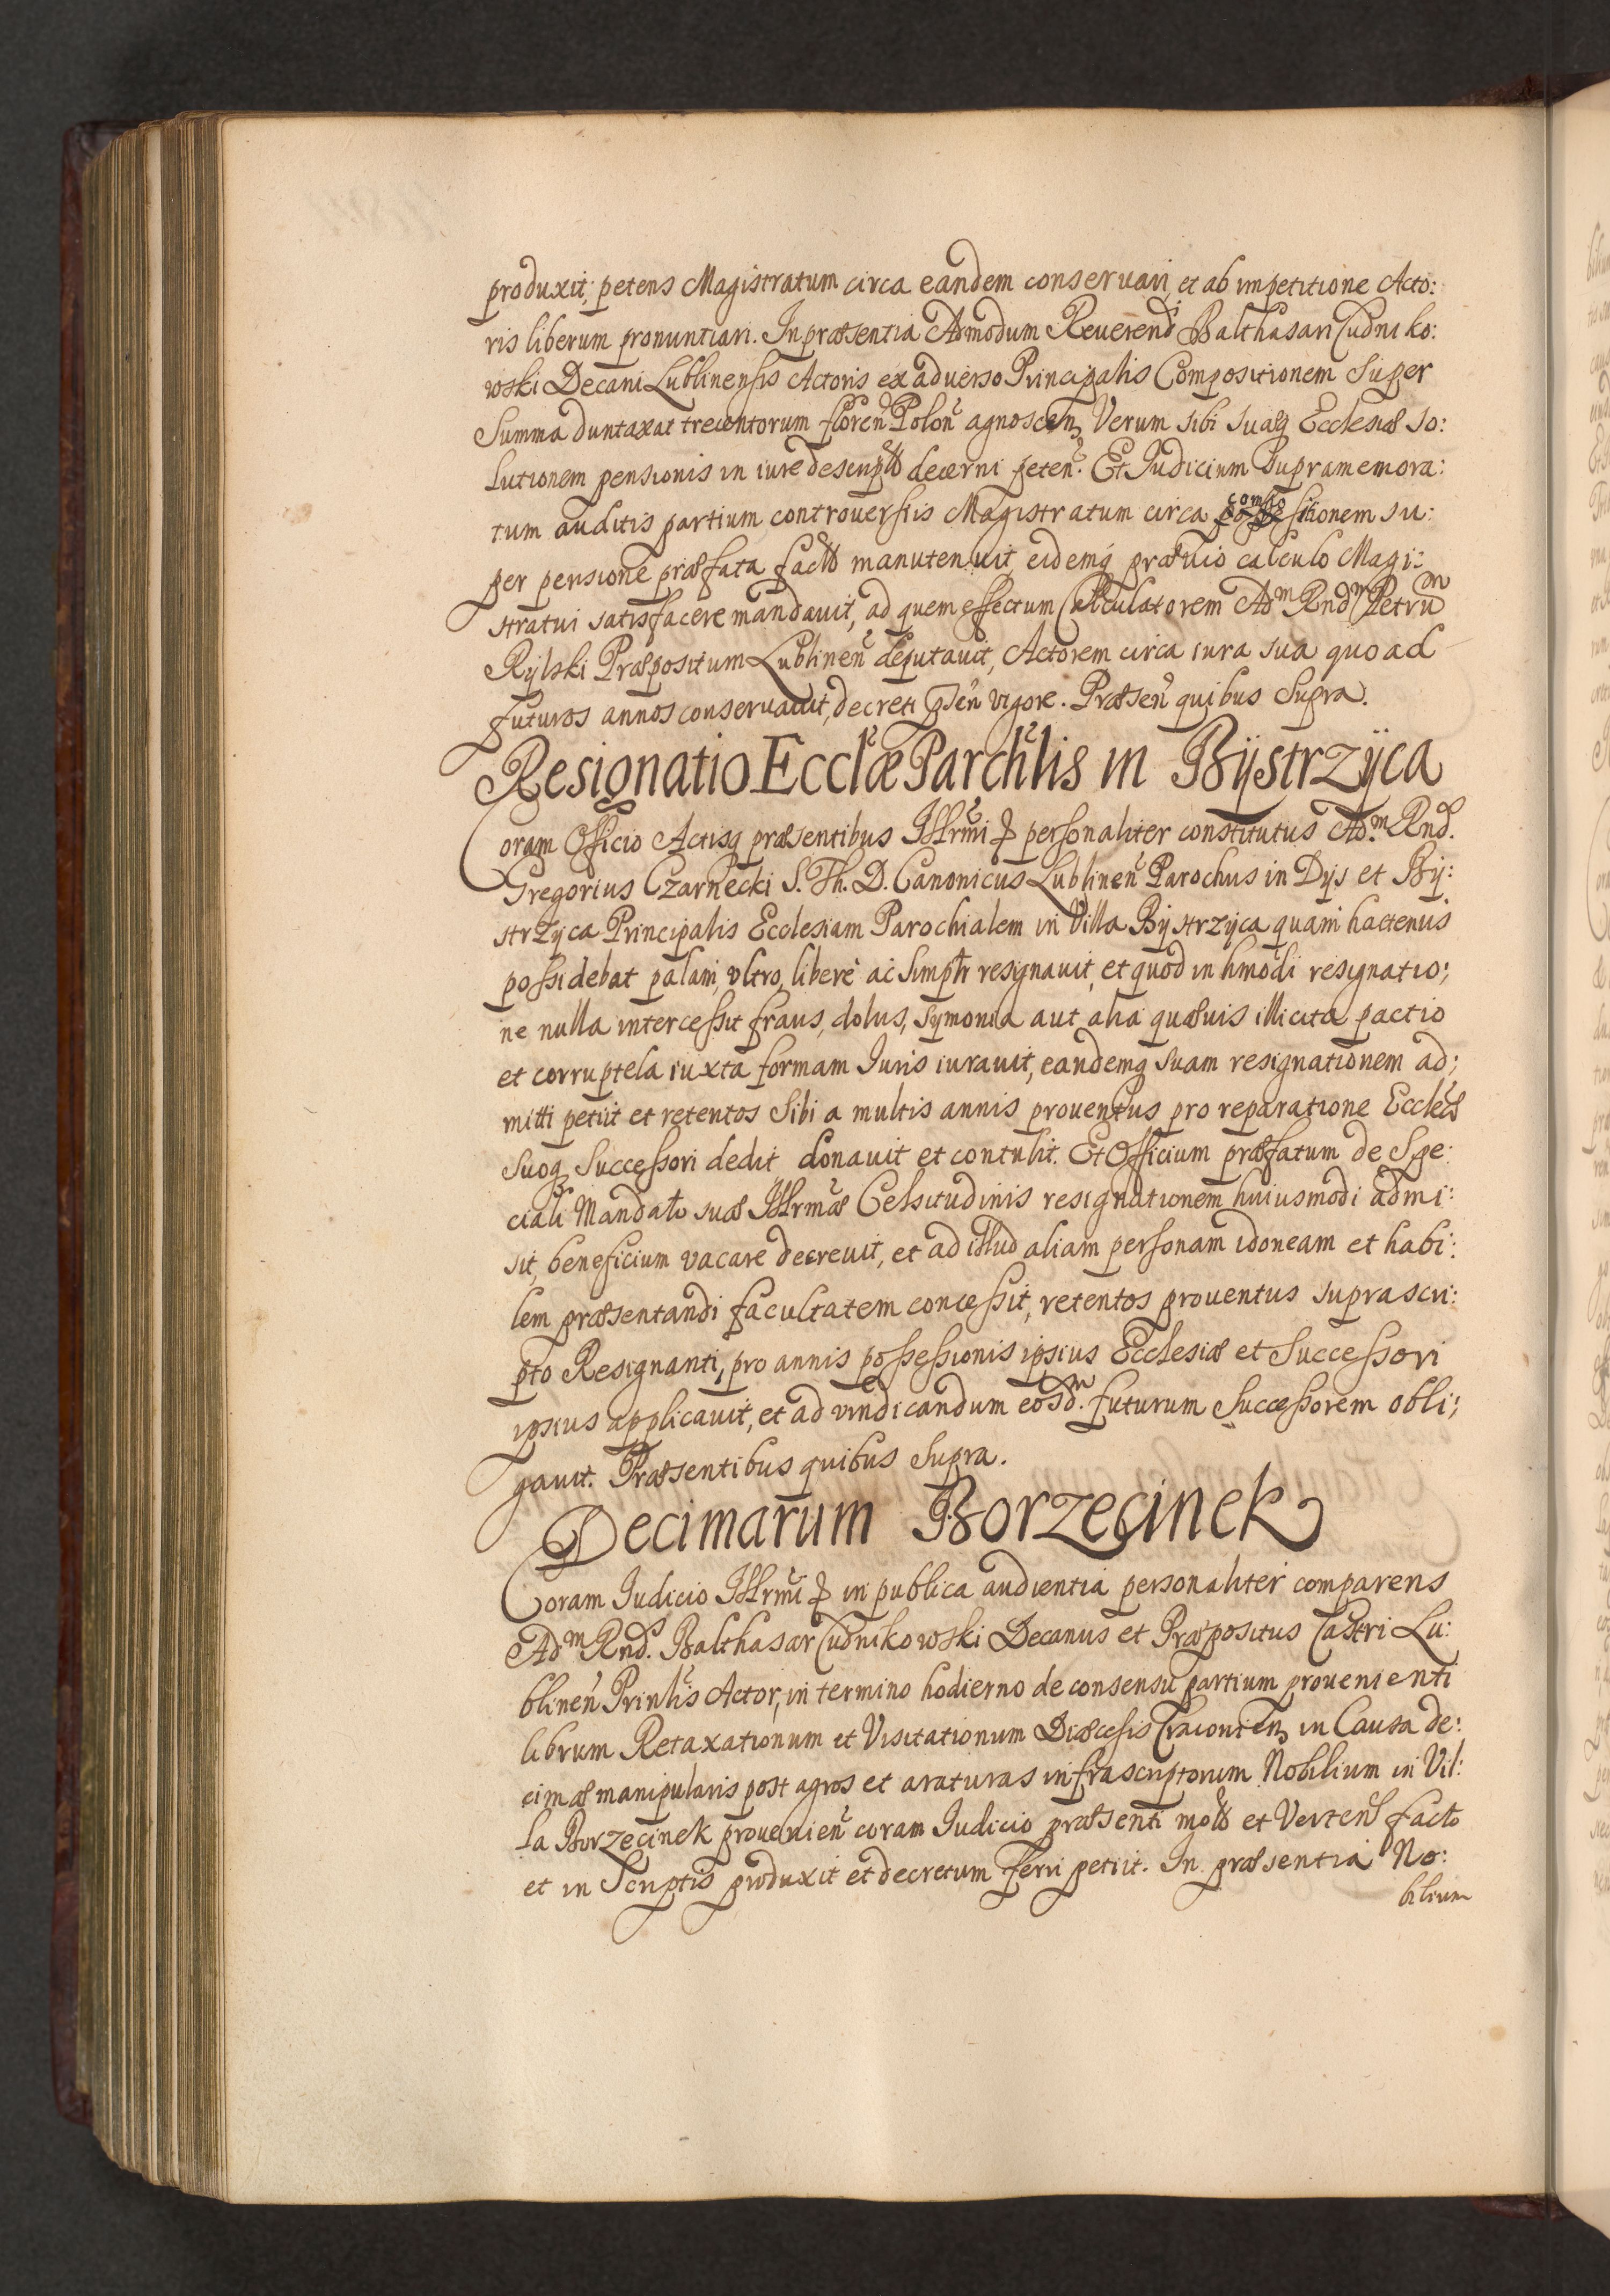 produxit, petens Magistratum circa eandem conseruari, et ab impetitione Acto:
ris liberum pronuntiari. In præsentia Admodum Reuerend Balthasari Cudniko:
wski Decani Lublinensis Actoris ex aduerso Principalis Compositionem super
Summa duntaxat trecentorum floreñ Poloñ agnosceñ Verum sibi suæq Ecclesiæ so:
lutionem pensionis in iure descripto decerni peteñ. Et Iudicium supramemora:
tum auditis partium controuersiis Magistratum circa compositionem su:
per pensione præfata facto manutenuit, eidemq præuio calculo Magi:
stratui satisfacere mandauit, ad quem effectum Calculatorem Adm Rndm Petrum
Rylski Præpositum Lublineñ deputauit, Actorem circa iura sua quoad
futuros annos conseruauit, decreti pseñ vigore. Præseñ quibus Supra.
Resignatio Ecclæ Parchlis in Bÿstrzÿca
Coram Officio Actisq præsentibus Illrmi personaliter constitutus Adm Rnd.
Gregorius Czarnecki S. Th. D. Canonicus Lublineñ Parochus in Dys et By:
strzÿca Principalis Ecclesiam Parochialem in Villa Bystrzÿca quam hactenus
possidebat palam, vltro, liberè ac simplr resignauit, et quod in hmodi resignatio:
ne nulla intercessit fraus, dolus, symonia aut alia quæuis illicita pactio
et corruptela iuxta formam Iuris iurauit, eandemq suam resignationem ad:
mitti petiit et retentos sibi a multis annis prouentus pro reparatione Ecclæ
suoq Successori dedit donauit et contulit. Et Officium præfatum de Spe:
ciali Mandato suæ Illrmæ Celsitudinis resignationem huiusmodi admi:
sit, beneficium vacare decreuit, et ad illud aliam personam idoneam et habi:
lem præsentandi facultatem concessit, retentos prouentus suprascri:
pto Resignanti, pro annis possessionis ipsius Ecclesiæ et Successori
ipsius applicauit, et ad vindicandum eosdm. futurum Successorem obli:
gauit. Præsentibus quibus Supra.
Decimarum Borzecinek
Coram Iudicio Illrmi in publica audientia personaliter comparens
Adm Rnds. Balthasar Cudnikowski Decanus et Præpositus Castri Lu:
blineñ Prinlis Actor, in termino hodierno de consensu partium prouenienti
librum Retaxationum et Visitationum Diæcesis Cracouieñ in Causa de:
cimæ manipularis post agros et araturas infrascriptorum Nobilium in Vil:
la Borzecinek prouenieñ coram Iudicio præsenti mota et Verteñ facto
et in Scriptis produxit et decretum ferri petiit. In præsentia No:
bilium